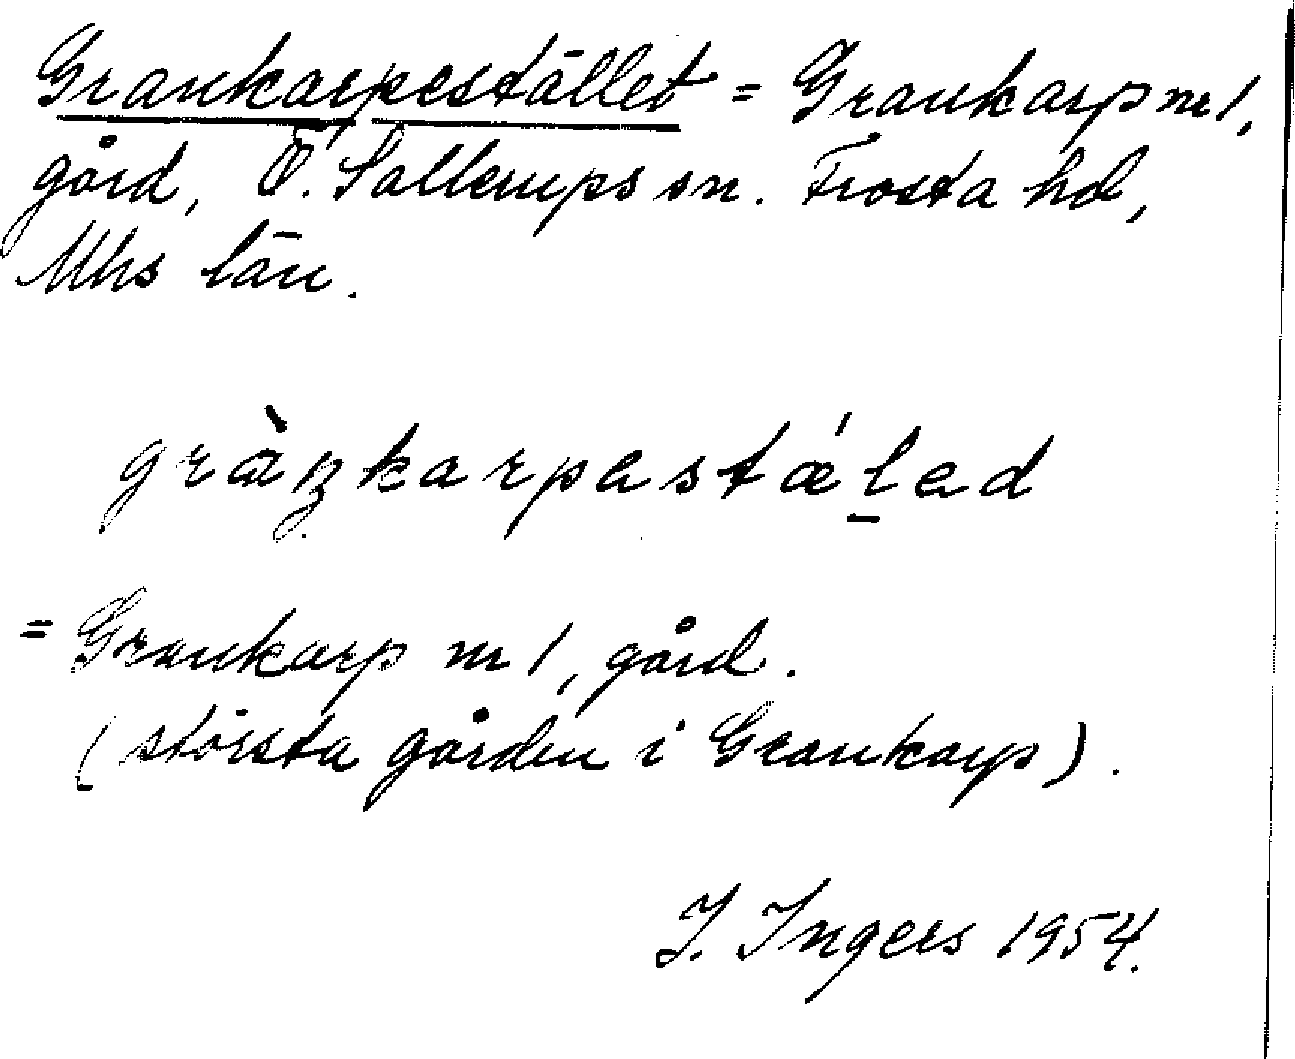 Grankarpestället = Grankarp nr 1,
gård, Ö. Sallerups sn. Frosta hd,
Mhs län.
gràŋkarpestǽl̠ed
= Grankarp nr 1, gård.
(största gården i Grankarp).
I. Ingers 1954.